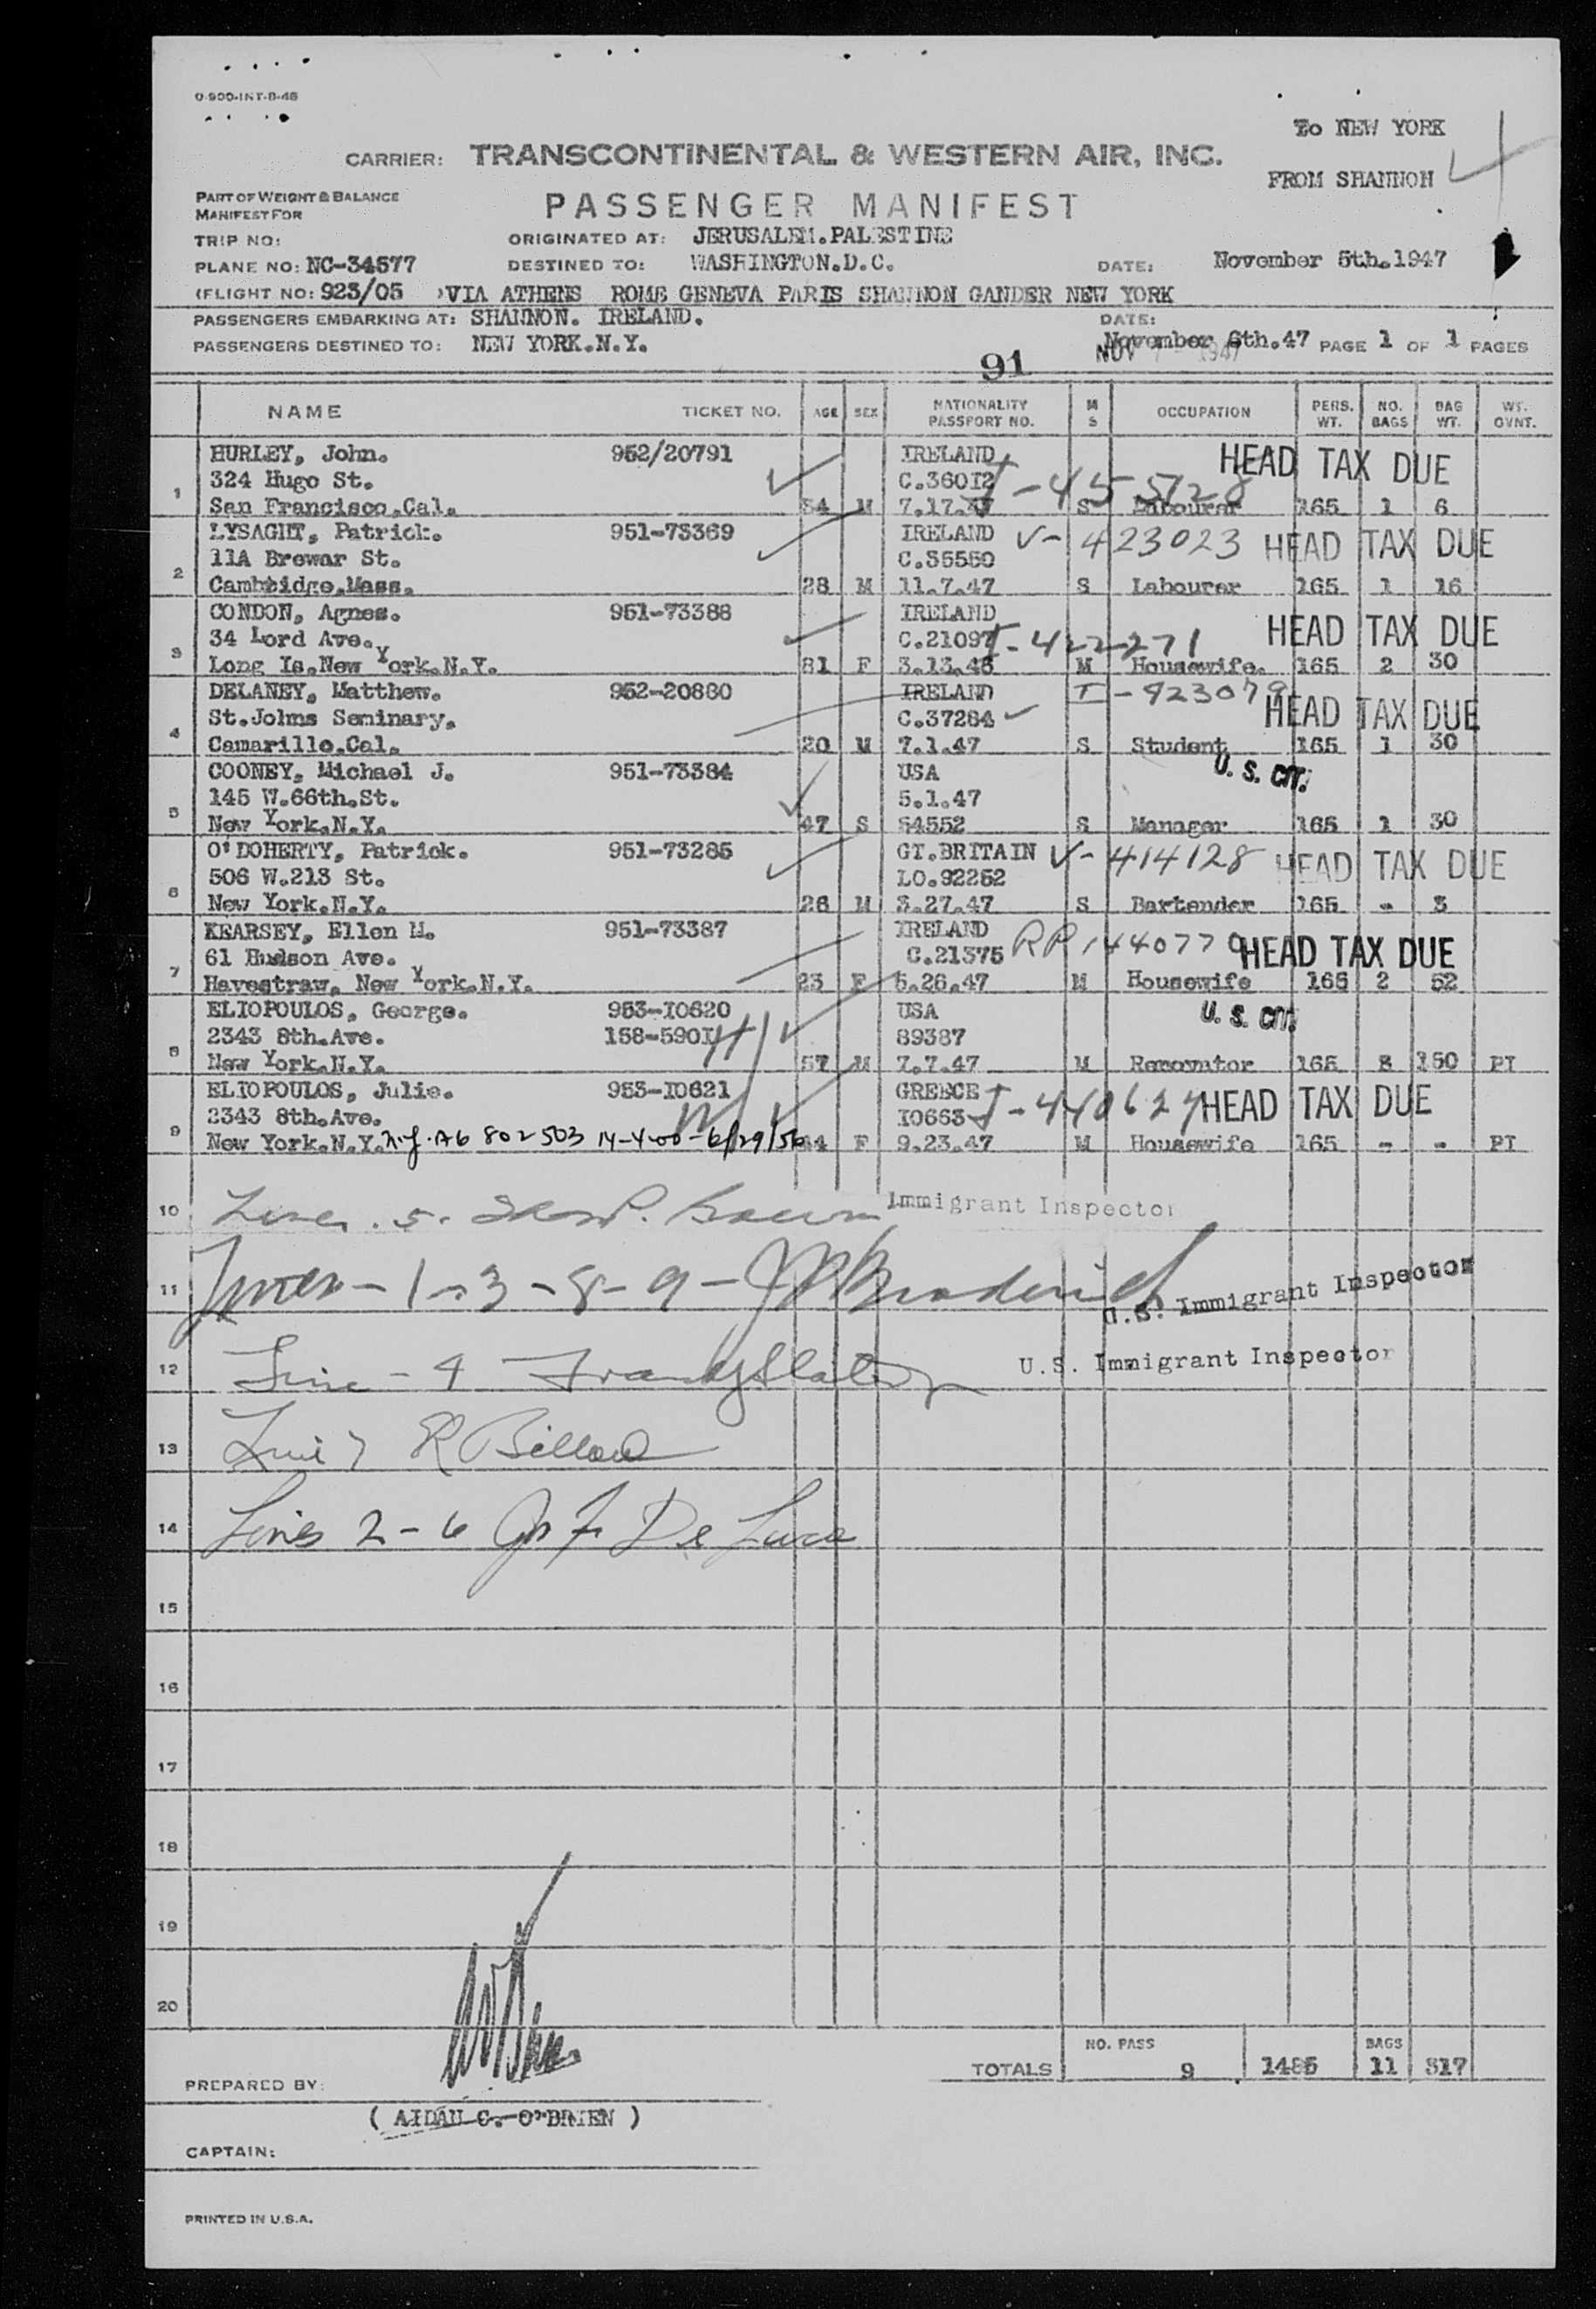 O-900-INT-8-46
To NEW YORK
CARRIER: TRANSCONTINENTAL & WESTERN AIR, INC.
FROM SHANNON
PART OF WEIGHT & BALANCE
MANIFEST FOR
PASSENGER MANIFEST
TRIP NO: ORIGINATED AT: JERUSALEM.PALESTINE
PLANE NO: NC-34577 DESTINED TO: WASHINGTON.D.C. DATE: November 5th.1947
(FLIGHT NO: 923/05 ) VIA ATHENS ROME GENEVA PARIS SHANNON GANDER NEW YORK
PASSENGERS EMBARKING AT: SHANNON. IRELAND. DATE:
PASSENGERS DESTINED TO: NEW YORK.N.Y. November 6th.47 PAGE 1 OF 1 PAGES
NOV 1947
91
NAME TICKET NO. AGE SEX NATIONALITY PASSPORT NO. M S OCCUPATION PERS. WT. NO. BAGS BAG WT. WT. OVNT.
HURLEY, John. 952/20791 IRELAND HEAD TAX DUE
324 Hugo St. C.36012 I-455728
1 San Francisco.Cal. 34 M 7.17.47 S Labourer 165 1 6
LYSAGHT, Patrick. 951-73369 IRELAND V-423023 HEAD TAX DUE
11A Brewar St. C.35550
2 Cambbidge.Mass. 28 M 11.7.47 S Labourer 165 1 16
CONDON, Agnes. 951-73388 IRELAND HEAD TAX DUE
34 Lord Ave. C.21097 I-422271
3 Long Is.New York.N.Y. 31 F 3.13.46 M Housewife. 165 2 30
DELANEY, Matthew. 952-20880 IRELAND I-423079
St.Johns Seminary. C.37284 HEAD TAX DUE
4 Camarillo.Cal. 20 M 7.1.47 S Student 165 1 30
COONEY, Michael J. 951-73384 USA U. S. CIT.
145 W.66th.St. 5.1.47
5 New York.N.Y. 47 S 54552 S Manager 165 1 30
O'DOHERTY, Patrick. 951-73285 GT.BRITAIN V-414128 HEAD TAX DUE
506 W.213 St. LO.92252
6 New York.N.Y. 26 M 3.27.47 S Bartender 165 - 3
KEARSEY, Ellen M. 951-73387 IRELAND
61 Hudson Ave. C.21375 RP 1440779 HEAD TAX DUE
7 Havestraw, New York.N.Y. 23 F 5.26.47 M Housewife 165 2 52
ELIOPOULOS, George. 953-10620 USA U. S. CIT.
2343 8th.Ave. 158-5901 89387
8 New York.N.Y. 57 M 7.7.47 M Renovator 165 3 150 PT
ELIOPOULOS, Julie. 953-10621 GREECE I-440627 HEAD TAX DUE
2343 8th.Ave. 10663
9 New York.N.Y. A6 802 503 14-4-00-6/29/56 44 F 9.23.47 M Housewife 165 - - PT
10 Immigrant Inspector
11 1-3-8-9- U.S. Immigrant Inspector
12 Line - 4 U.S. Immigrant Inspector
13 Line 7
14 Lines 2-6 De Luca
15
16
17
18
19
20
TOTALS NO. PASS 9 1485 BAGS 11 317
PREPARED BY:
( AIDAN C. O'BRIEN )
CAPTAIN:
PRINTED IN U.S.A.